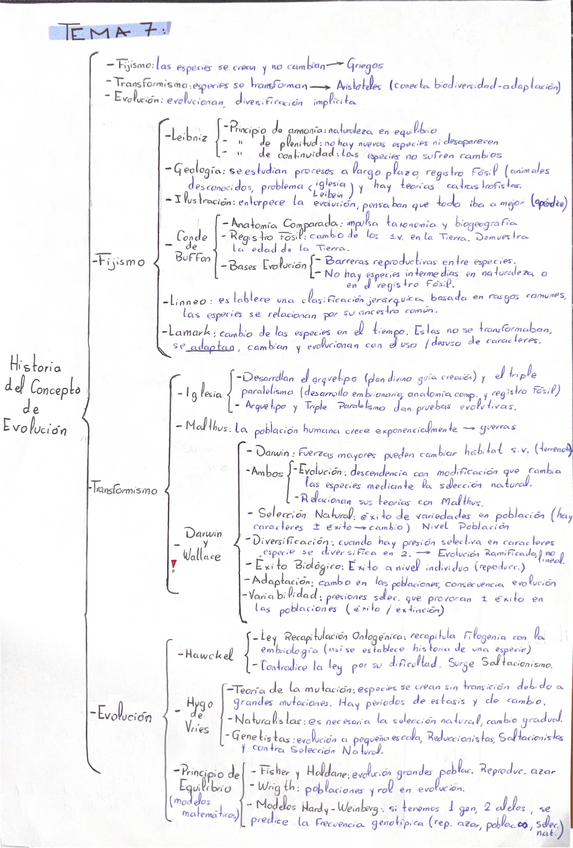 TEMA 7:
- Fijismo: las especies se crean y no cambian → Griegos
- Transformismo: especies se transforman → Aristóteles (conecta biodiversidad-adaptación)
- Evolución: evolucionan, diversificación implícita
- Fijismo
- Leibniz
- Principio de armonía: naturaleza en equilibrio
- " de plenitud: no hay nuevas especies ni desaparecen
- " de continuidad: las especies no sufren cambios
- Geología: se estudian procesos a largo plazo, registro fósil (animales
desconocidos, problema (iglesia Leibniz) y hay teorías catastrofistas.
- Ilustración: entorpece la evolución, pensaban que todo iba a mejor
- Conde de Buffon
- Anatomía Comparada: impulsa taxonomía y biogeografía
- Registro Fósil: cambio de los s.v. en la Tierra. Demuestra
la edad de la Tierra.
- Bases Evolución
- Barreras reproductivas entre especies.
- No hay especies intermedias en naturaleza o
en el registro Fósil.
- Linneo: establece una clasificación jerárquica basada en rasgos comunes,
las especies se relacionan por su ancestro común.
- Lamark: cambio de las especies en el tiempo. Estas no se transformaban,
se adaptan, cambian y evolucionan con el uso / desuso de caracteres.
Historia del Concepto de Evolución
- Transformismo
- Iglesia
- Desarrollan el arquetipo (plan divino guía creación) y el triple
paralelismo (desarrollo embrionario, anatomía comp. y registro fósil)
- Arquetipo y Triple Paralelismo dan pruebas evolutivas.
- Malthus: la población humana crece exponencialmente → guerras
- Darwin y Wallace
- Darwin: Fuerzas mayores pueden cambiar hábitat s.v.
- Ambos
- Evolución: descendencia con modificación que cambia
las especies mediante la selección natural.
- Relacionan sus teorías con Malthus.
- Selección Natural: éxito de variedades en población (hay
caracteres ± éxito → cambio) Nivel Población
- Diversificación: cuando hay presión selectiva en caracteres
especie se diversifica en 2. → Evolución Ramificada, no lineal.
- Éxito Biológico: Éxito a nivel individuo (reproducc.)
- Adaptación: cambio en las poblaciones, consecuencia evolución
- Variabilidad: presiones selec. que provocan ± éxito en
las poblaciones (éxito / extinción)
- Evolución
- Hawckel
- Ley Recapitulación Ontogénica: recapitula Filogenia con la
embriología (así se establece historia de una especie)
- Contradice la ley por su dificultad. Surge Saltacionismo.
- Hygo de Vries
- Teoría de la mutación: especies se crean sin transición debido a
grandes mutaciones. Hay periodos de estasis y de cambio.
- Naturalistas: es necesaria la selección natural, cambio gradual.
- Genetistas: evolución a pequeña escala, Reduccionistas, Saltacionistas
y contra Selección Natural.
- Principio de Equilibrio (modelos matemáticos)
- Fisher y Haldane: evolución grandes poblac. Reproduc. azar
- Wright: poblaciones y rol en evolución.
- Modelos Hardy-Weinberg: si tenemos 1 gen, 2 alelos, se
predice la frecuencia genotípica (rep. azar, poblac. ∞, selec. nat.)